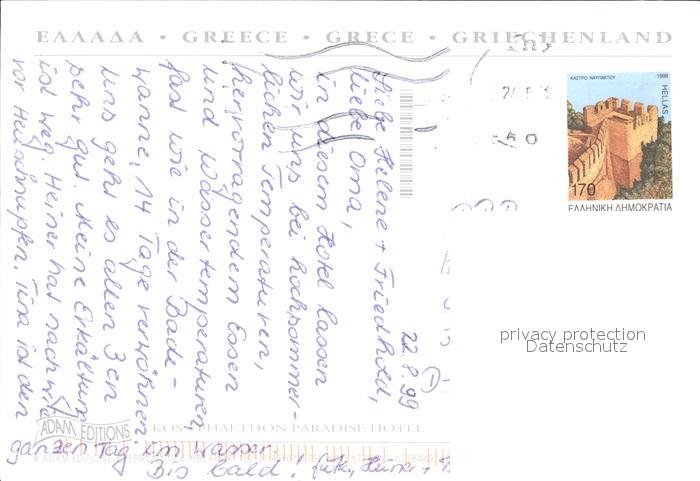 ΕΛΛΑΔΑ • GREECE • GRECE • GRIECHENLAND
ΚΑΣΤΡΟ ΝΑΥΠΑΚΤΟΥ 1998
HELLAS
170
ΕΛΛΗΝΙΚΗ ΔΗΜΟΚΡΑΤΙΑ
22.8.99
Liebe Helene + Friedhold,
liebe Oma,
in diesem Hotel lassen
wir uns bei hochsommer-
lichen Temperaturen,
hervorragendem Essen
und Wassertemperaturen,
fast wie in der Bade-
wanne, 14 Tage verwöhnen
Uns geht es allen 3en
sehr gut. Meine Erkältung
ist weg. Heiner hat nach wie
vor Heuschnupfen. Tim ist den
ganzen Tag im Wasser.
Bis bald! Heiner +
KOS PHAETHON PARADISE HOTEL
ADAM EDITIONS
privacy protection
Datenschutz